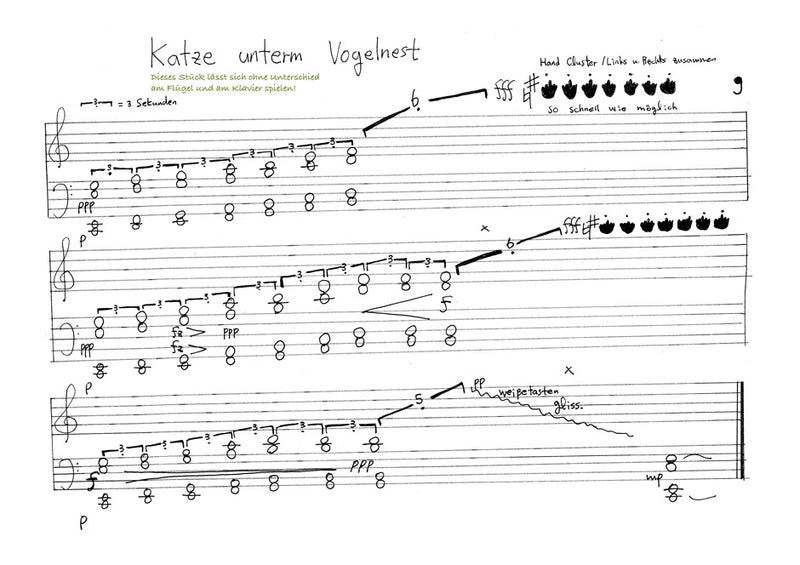 Katze unterm Vogelnest
Dieses Stück lässt sich ohne Unterschied
am Flügel und am Klavier spielen!
Hand Cluster / Links u. Rechts zusammen
3 = 3 Sekunden
6
fff
so schnell wie möglich
9
3 3 3 3 3 3
ppp
p
x
6
fff
3 3 3 3 3 3 3 3
f
fz ppp
ppp
fz
p
x
5
pp
weiße tasten
gliss.
3 3 3 3 3 3
ppp
f
mp
p